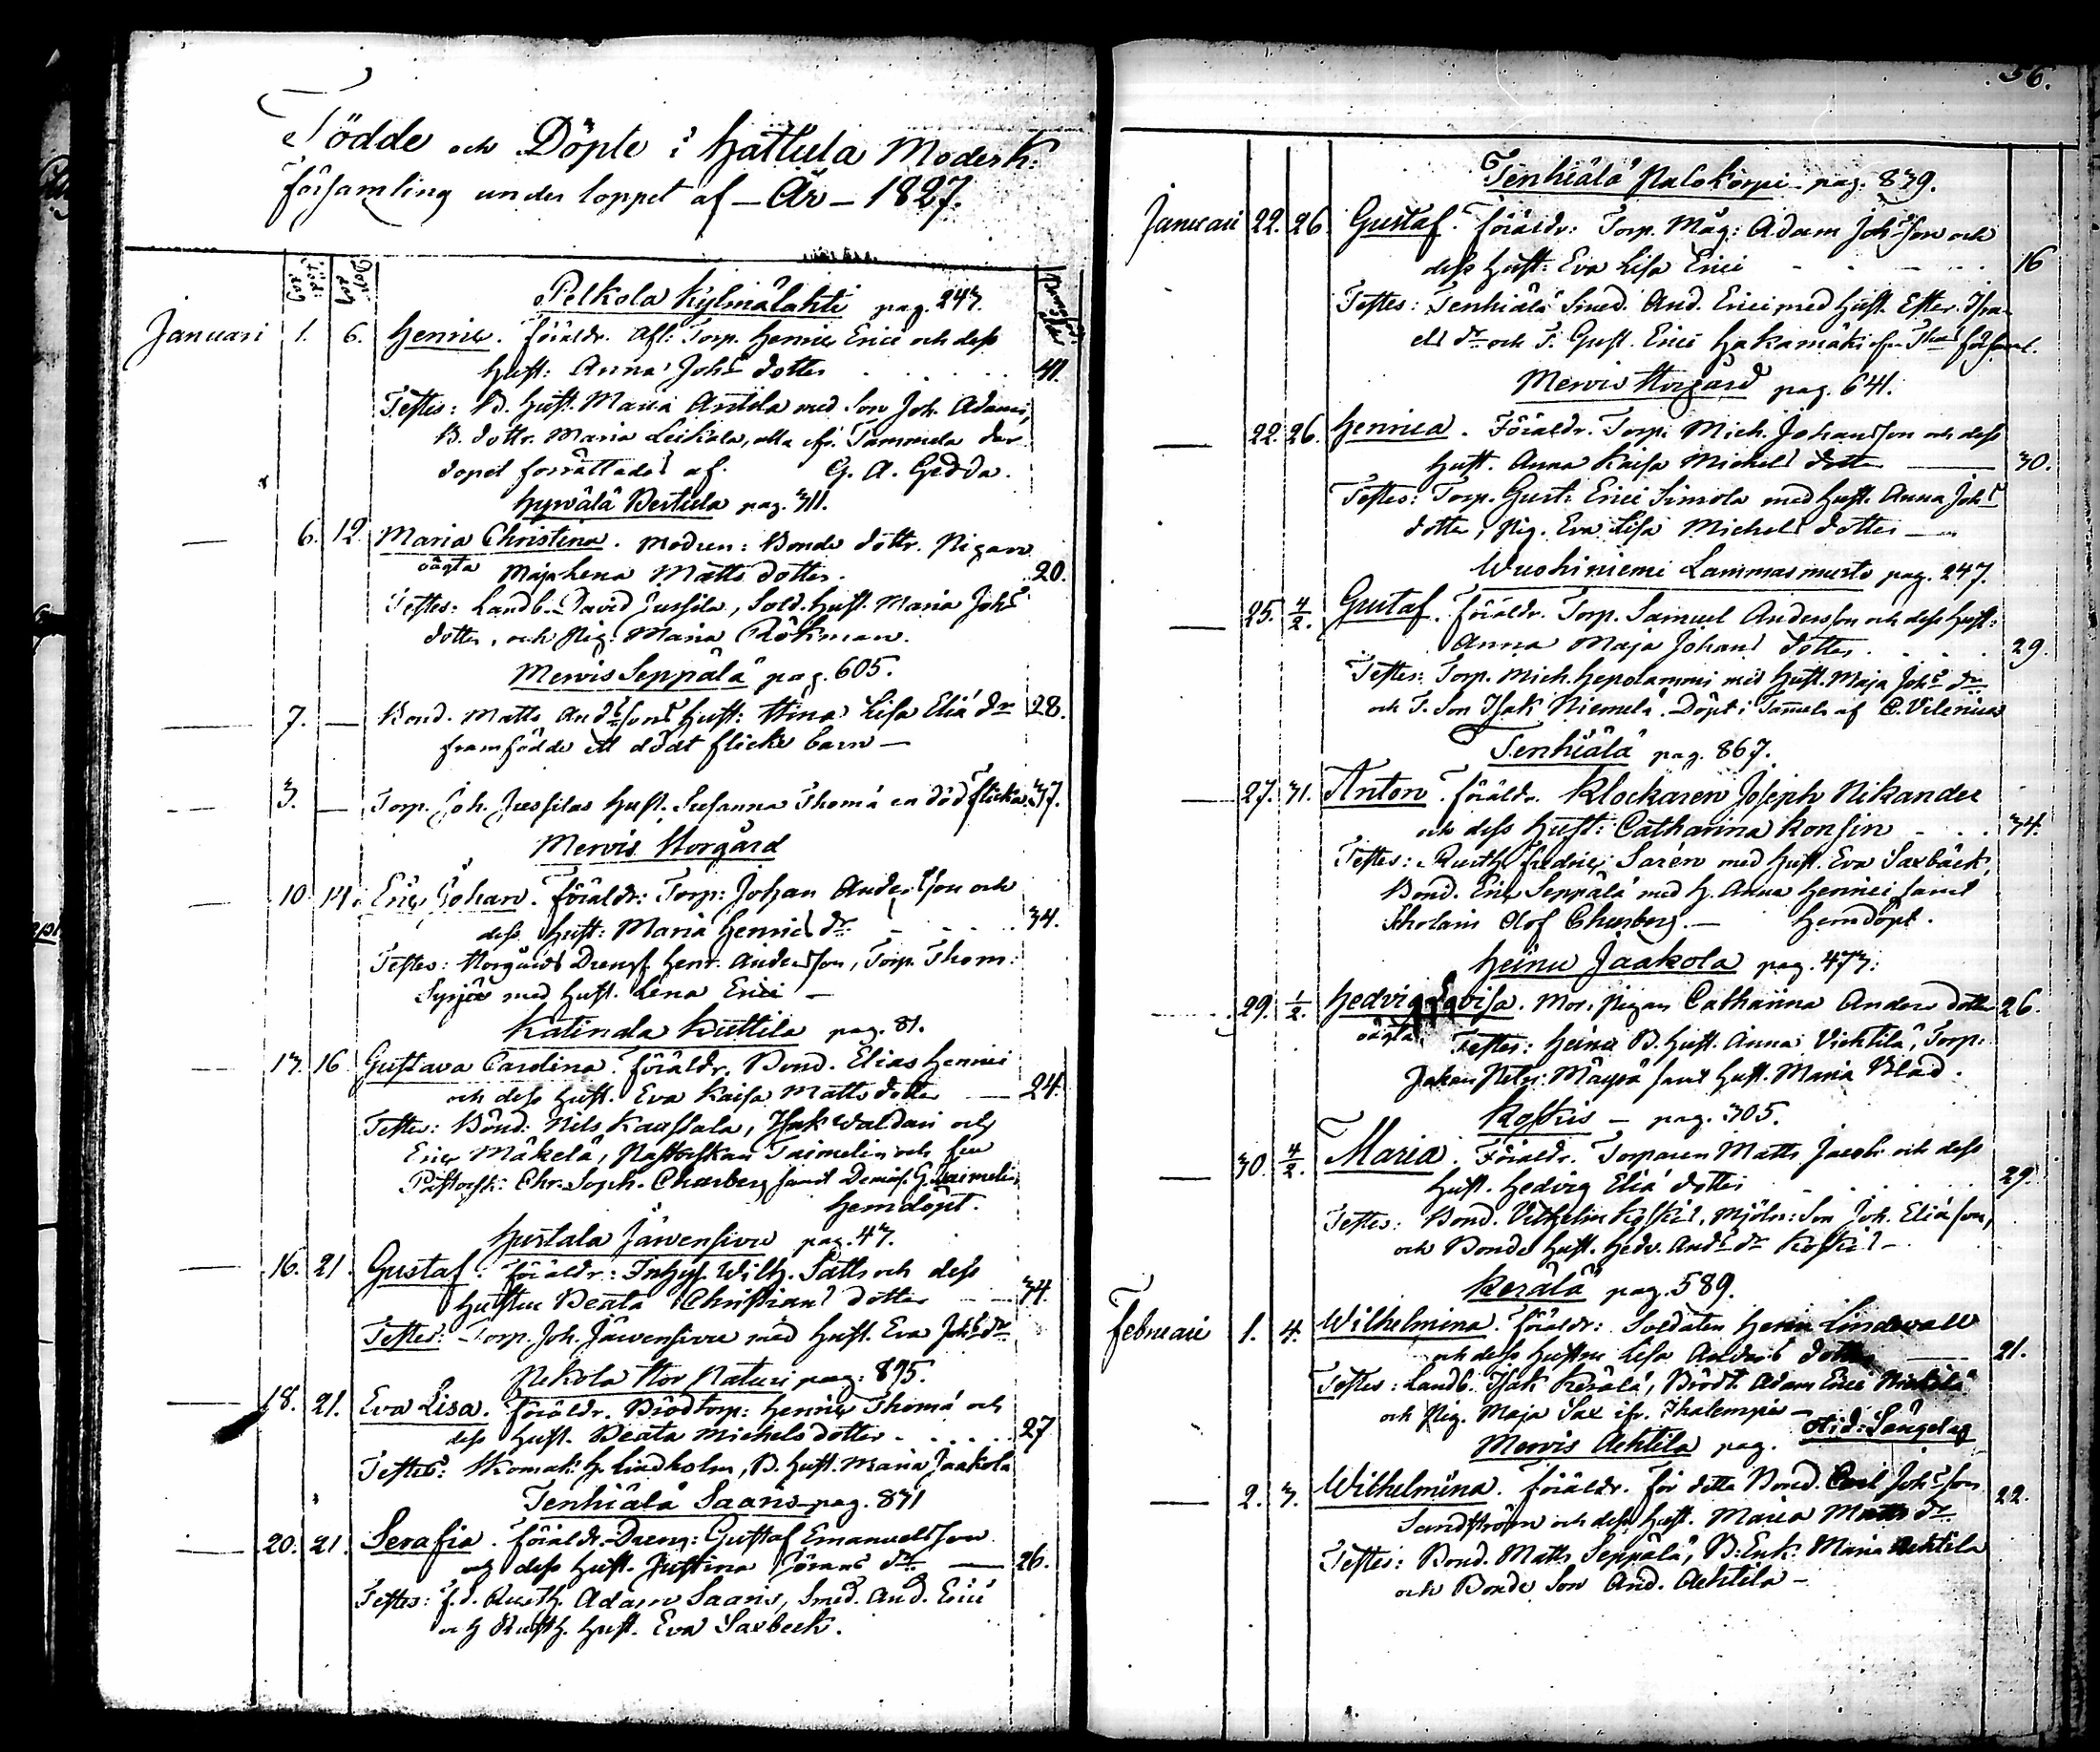 Födde och Döpte i Hattula Moderk:
församling under loppet af – År – 1827.
Föd: dag
Dop dag
Pelkola Kylmälahti pag. 247.
Januari 1. 6. Henric. Föräldr. Afl: Torp. Henric Erici och dess
Hust: Anna Johs dotter 41.
Testes: B. Hust. Maria Anttila med Son Joh. Adami,
B. dottr. Maria Leikola, alla ifr. Tammela der
dopet förrättades af. G. A. Gadda.
Hyrvälä Bertula pag. 311.
— 6. 12. Maria Christina. Modren: Bonde dottr. Pigan
oägta Maja Lena Matts dotter. 20.
Testes: Landb. David Jussila, Sold. Hust. Maria Johs
dotter, och Pig. Maria Rökman.
Mervis Seppälä pag. 605.
— 7. — Bond. Matts Andersons Hust: Stina Lisa Eliæ dr 28.
framfödde ett dödt flicke barn —
— 3. — Torp. Joh. Jussilas Hust. Susanna Thomæ en död flicka 37.
Mervis Storgård
— 10. 14. Eric Johan. Föräldr: Torp: Johan Andersson och
dess Hust: Maria Henrics dr 34.
Testes: Storgårds Dreng. Henr. Andersson, Torp. Thom:
Syrjä med Hust. Lena Erici —
Katinala Kuttila pag. 81.
— 13. 16 Gustava Carolina. Föräldr. Bond. Elias Henrici
och dess Hust. Eva Kaisa Matts dotter — 24.
Testes: Bönd: Nils Kaussala, Isak Waldari och
Eric Mäkelä, Pastorskan Taimelin och fru
Pastorsk: Chr. Soph. Charberg samt Demois. G. Taimelin,
Hemdöpt.
Hurtala Järvensivu pag. 47.
— 16. 21. Gustaf. Föräldr: Inhys. Wilh. Mattss och dess
Hustru Beata Christians dotter — 34.
Testes: Torp. Joh. Järvensivu med Hust. Eva Johs dr
Pekola Stor Naturi pag: 895.
18. 21. Eva Lisa. Föräldr. Brödtorp: Henric Thomæ och
dess Hust. Beata Michels dotter 27
Testes: Skomak: H. Lindholm, B. Hust. Maria Jaakola
Tenhiälä Saaris pag. 831
— 20. 21. Serafia. Föräldr. Dreng: Gustaf Emanuelsson
och dess Hust. Justina Jörans dr — 26.
Testes: f. d. Rusth. Adam Saaris, Smed. And. Erici
och Rusth. Hust. Eva Saxbeck.
56.
Tenhiälä Palokorpi pag. 839.
Januari 22. 26. Gustaf. Föräldr: Torp. Måg: Adam Johsson och
dess Hust: Eva Lisa Erici 16
Testes: Tenhiälä Smed. And. Erici med Hust. Ester Isra-
els dr och T. Gust. Erici Hakamäki
Mervis Storgård pag. 641.
— 22. 26. Henrica. Föräldr. Torp. Mich. Johansson och dess
Hust. Anna Kaisa Michels dotter — 30.
Testes: Torp. Gust: Erici Simola med Hust. Anna Johs
dotter, Pig. Eva Lisa Michels dotter —
Wuohiniemi Lammasmusta pag. 247.
— 25. 4/2. Gustaf. Föräldr. Torp. Samuel Andersson och dess Hust:
Anna Maja Johans dotter 29.
Testes: Torp. Mich. Hepolammi med Hust. Maja Johs dr
och T. Son Isak Niemelä. Döpt i Tamela af C. Vilenius
Tenhiälä pag. 867.
— 27. 31. Anton. Föräldr. Klockaren Joseph Nikander
och dess Hust: Catharina Konsin 34.
Testes: Rusth. Fredric Sarén med Hust. Eva Saxbäck,
Bond. Eric Seppälä med H. Anna Henrici samt
Skolaris Olof Charberg. — Hemdöpt.
Heinu Jaakola pag. 473:
29. 1/2. Hedvig Lovisa. Mor. Pigan Catharina Anders dotter 26.
oägta. Testes: Heinu B. Hust. Anna Vichtilä, Torp.
Johan Mäyrä samt Hust. Maria Blad.
Koskis — pag. 305.
— 30. 4/2. Maria. Föräldr. Torparen Matts Jacobi och dess
Hust. Hedvig Eliæ dotter 29.
Testes: Bond. Vilhelm Koskis, Mjöln: Son Joh. Eliæson,
och Bonde Hust. Hedv. Ands dr Koskis —
Kerälä pag. 589.
Februari 1. 4. Wilhelmina. Föräldr: Soldaten Henric Lindvall
och dess Hustru Lisa Anders dotter — 21.
Testes: Landb. Isak Kerälä, Brödt. Adam Erici
och Pig. Maja Sax ifr. Ihalempi —
Mervis Ahtila pag. otid: Sängelag
— 2. 3. Wilhelmina. Föräldr. För detta Bond. Carl Johsson
Sandström och dess Hust. Maria Matts dr 22.
Testes: Bond. Matts Seppälä, B. Enk: Maria Ahtila
och Bonde Son And. Ahtila —